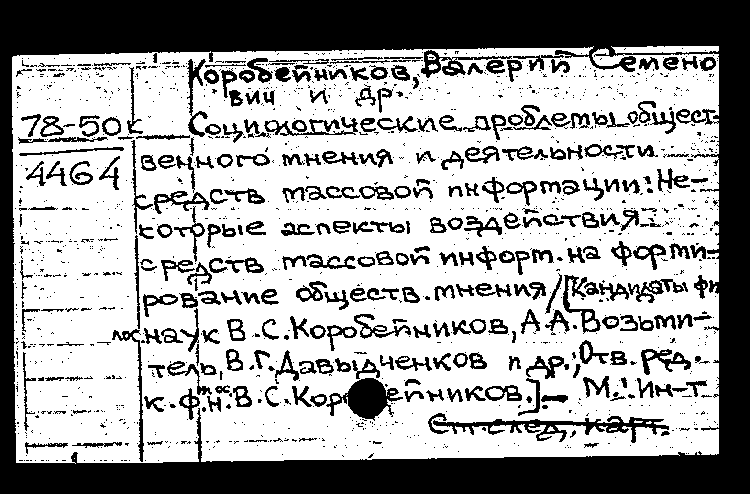 Коробейников, Валерий Семено
вич и др.
78-50к Социологические проблемы общест-
4464 венного мнения и деятельности
средств массовой информации: Не-
которые аспекты воздействия
средств массовой информ. на форми-
рование обществ. мнения / [Кандидаты фи
лос. наук В.С.Коробейников, А.А.Возьми-
тель, В.Г.Давыдченков и др.; Отв. ред.
к.ф.н. В.С.Кор ейников.]. – М.: Ин-т
См. след. карт.